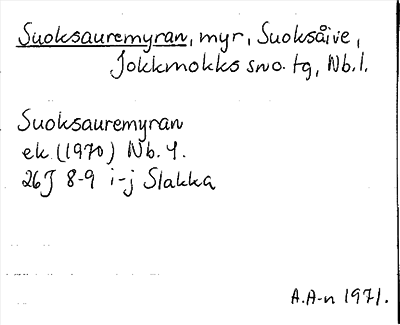 Suoksauremyran, myr, Suoksåive,
Jokkmokks sno. tg, Nb. l.
Suoksauremyran
ek. (1970) Nb. 4.
26J 8-9 i-j Slakka
A.A-n 1971.